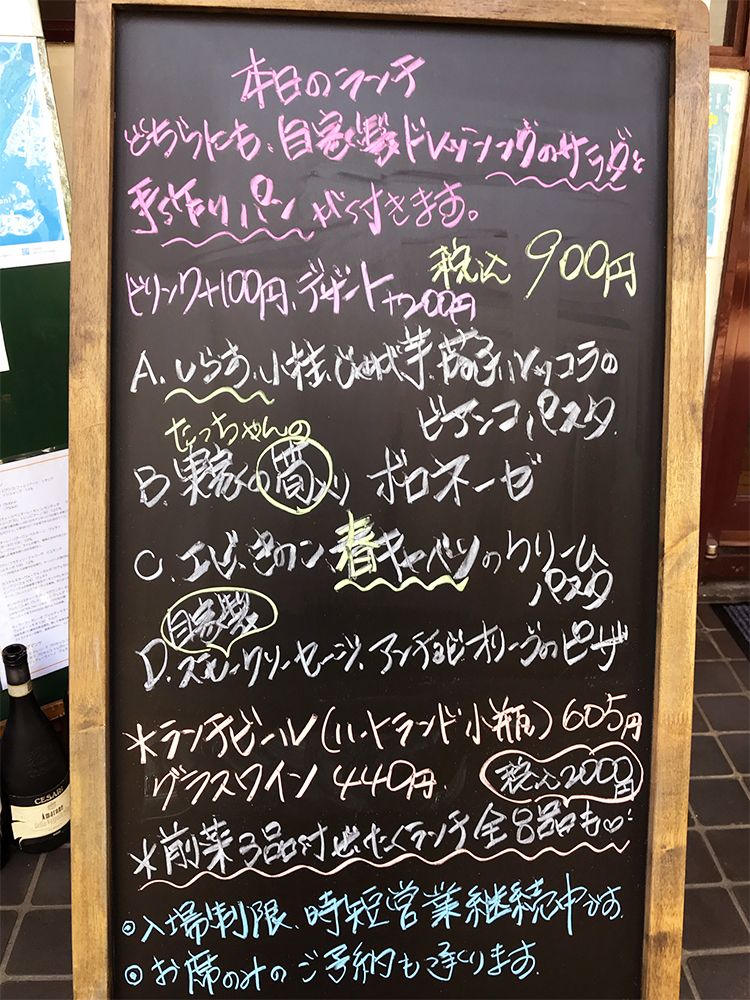 本日のランチ
どちらにも、自家製ドレッシングのサラダと
手作りパンが付きます。
税込 900円
ドリンク+100円、デザート+200円
A. しらす、小柱、じゃが芋、茄子、ルッコラの
ビアンコパスタ
なっちゃんの
B. 実家の筍入り ボロネーゼ
C. エビ、きのこ、春キャベツのクリーム
パスタ
自家製
D. スモークソーセージ、アンチョビ オリーブのピザ
*ランチビール(ハートランド小瓶) 605円
グラスワイン 440円
税込2000円
*前菜3品付ぜいたくランチ 全8品も♡
◎入場制限、時短営業継続中です
◎お席のみのご予約も承ります。
CESARI
Amarone